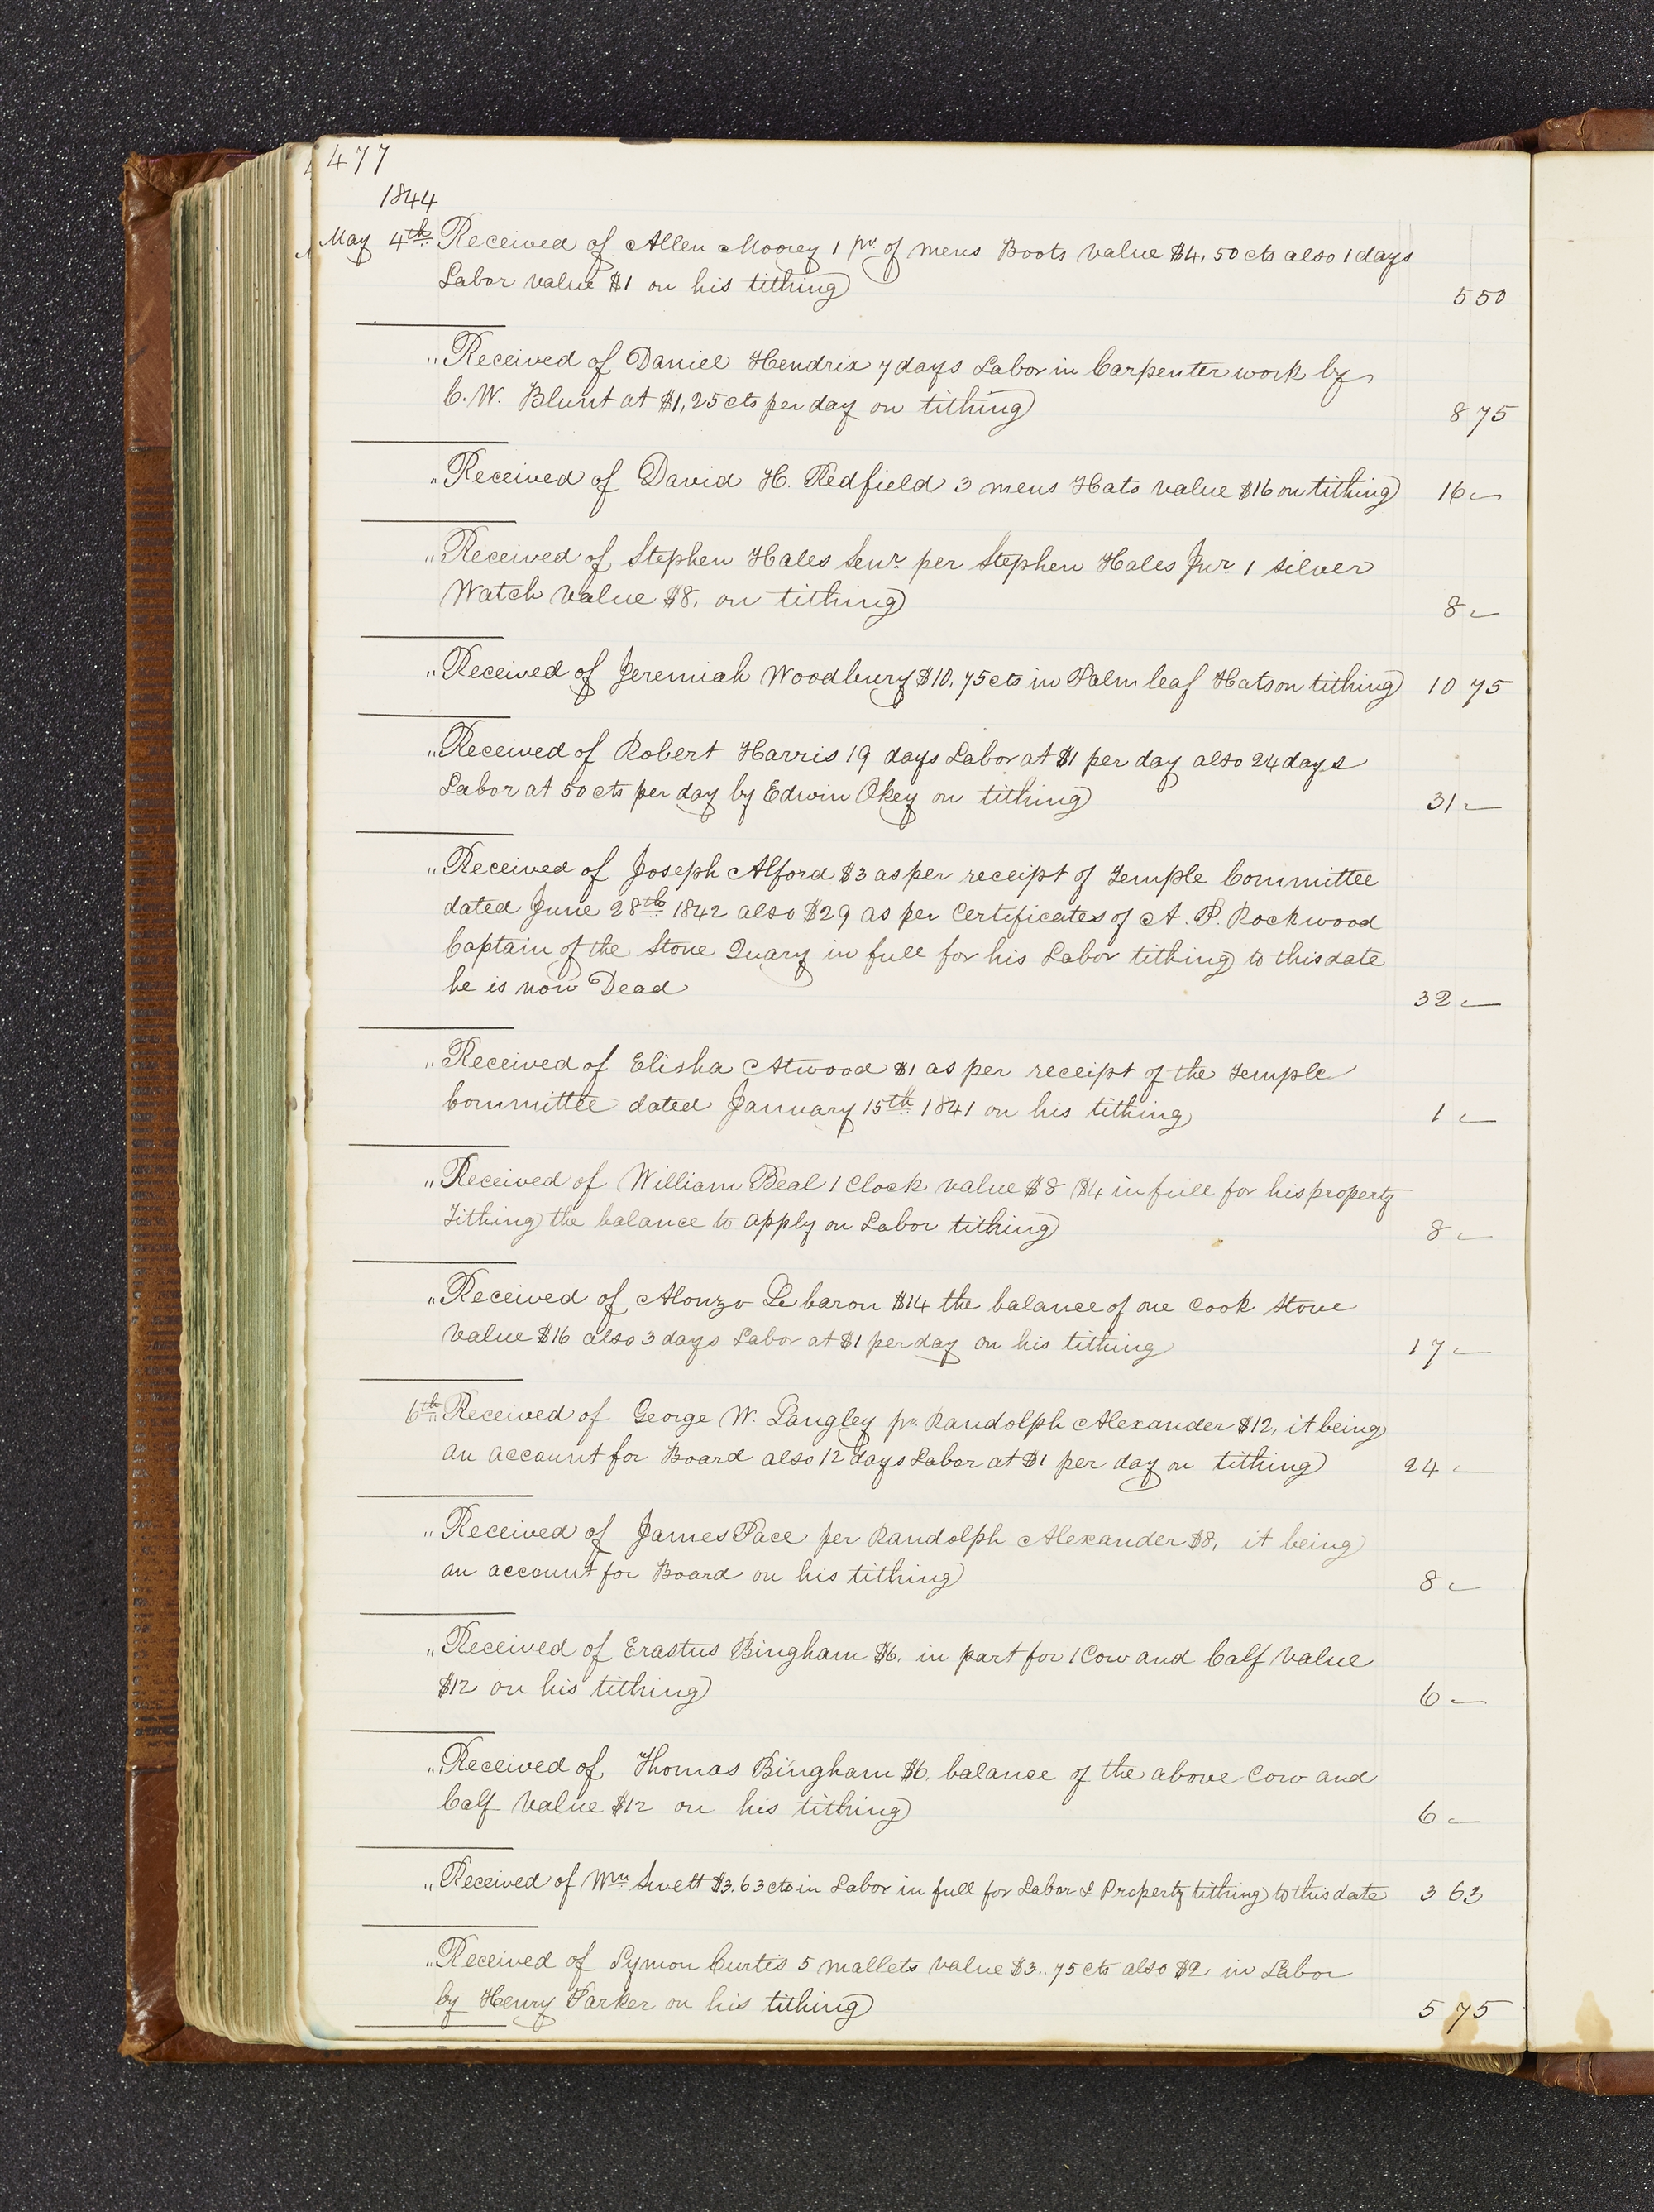 477
1844
May 4th Received of Allen Moorey 1 pr. of mens Boots value $4,50 cts also 1 days
Labor value $1 on his tithing 5 50
" Received of Daniel Hendrix 7 days Labor in Carpenter work by
C. W. Blunt at $1,25 cts per day on tithing 8 75
" Received of David H. Redfield 3 mens Hats value $16 on tithing 16 —
" Received of Stephen Hales Senr. per Stephen Hales Jnr. 1 silver
Watch value $8. on tithing 8 —
" Received of Jeremiah Woodbury $10,75 cts in Palm leaf Hats on tithing 10 75
" Received of Robert Harris 19 days Labor at $1 per day also 24 days
Labor at 50 cts per day by Edwin Okey on tithing 31 —
" Received of Joseph Alford $3 as per receipt of Temple Committee
dated June 28th 1842 also $29 as per Certificates of A. P. Rockwood
Captain of the Stone Quary in full for his Labor tithing to this date
he is now Dead 32 —
" Received of Elisha Atwood $1 as per receipt of the Temple
Committee dated January 15th 1841 on his tithing 1 —
" Received of William Beal 1 Clock value $8 $4 in full for his property
Tithing the balance to apply on Labor tithing 8 —
" Received of Alonzo Le baron $14 the balance of one Cook Stove
value $16 also 3 days Labor at $1 per day on his tithing 17 —
6th " Received of George W. Langley pr. Randolph Alexander $12, it being
an account for Board also 12 days Labor at $1 per day on tithing 24 —
" Received of James Pace per Randolph Alexander $8, it being
an account for Board on his tithing 8 —
" Received of Erastus Bingham $6. in part for 1 Cow and Calf value
$12 on his tithing 6 —
" Received of Thomas Bingham $6. balance of the above Cow and
Calf value $12 on his tithing 6 —
" Received of Wm. Swett $3.63 cts in Labor in full for Labor & Property tithing to this date 3 63
" Received of Symon Curtis 5 mallets value $3..75 cts also $2 in Labor
by Henry Parker on his tithing 5 75